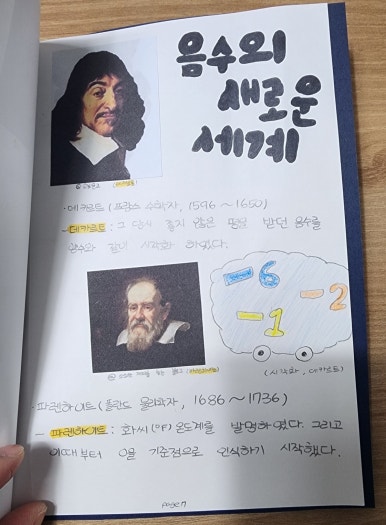 음수의
새로운
세계
(데카르트)
· 데카르트 (프랑스 수학자, 1596 ~ 1650)
- 데카르트 : 그 당시 좋지 않은 평을 받던 음수를
양수와 같이 시각화 하였다.
-6
-2
-1
(시각화,
· 파렌하이트 (폴란드 물리학자, 1686 ~ 1736)
- 파렌하이트 : 화씨(°F) 온도계를 발명하였다. 그리고
이때부터 0을 기준점으로 인식하기 시작했다.
page 7